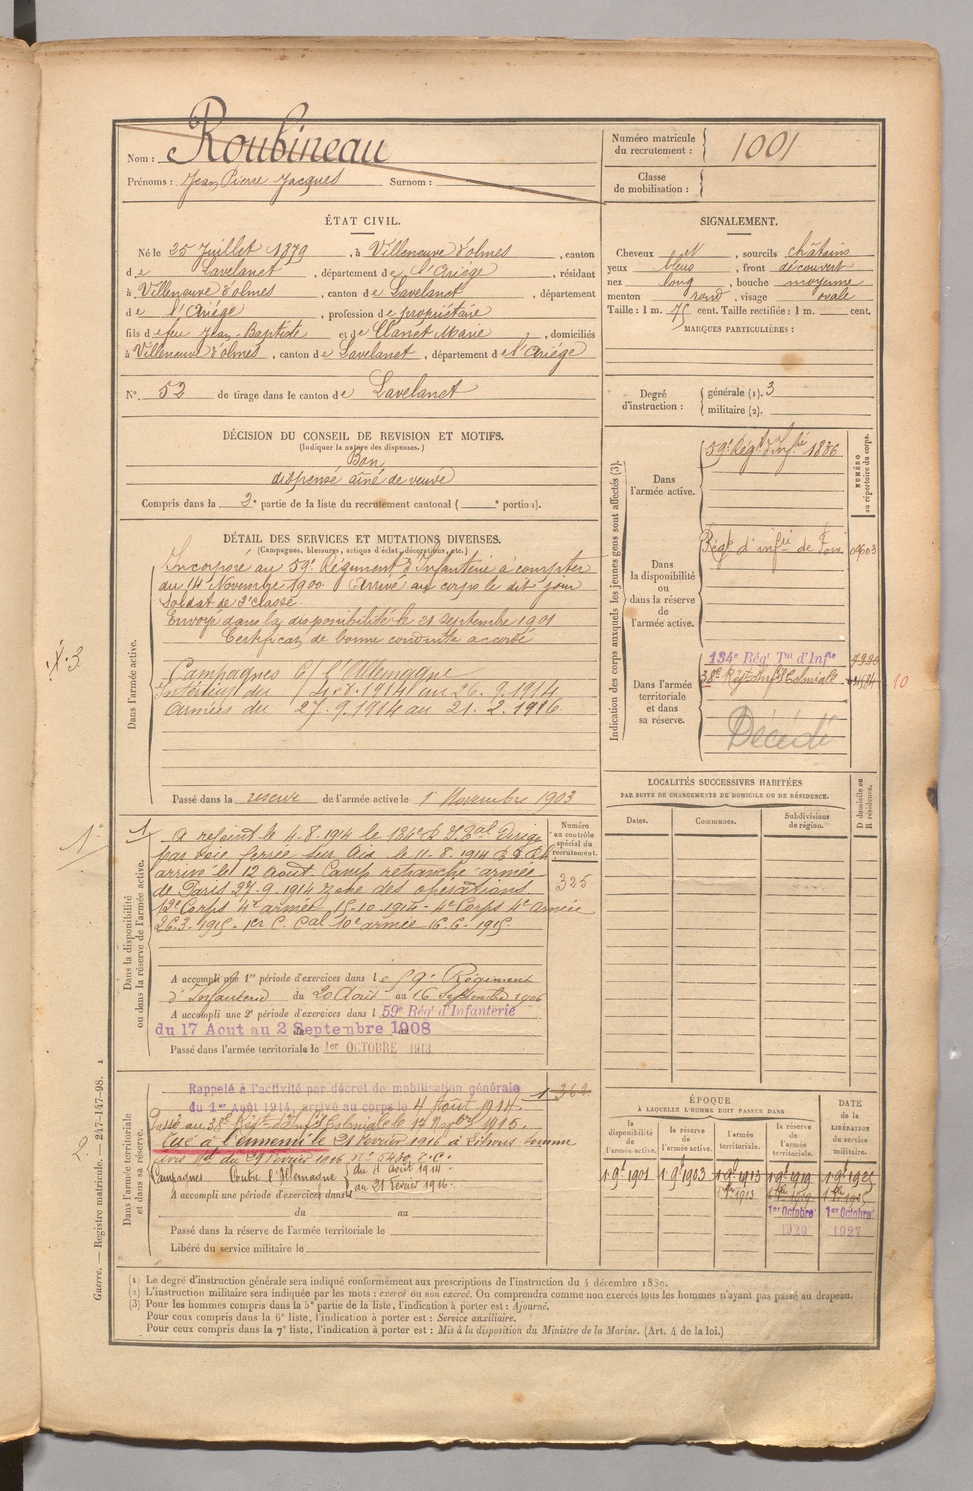 Nom : Roubineau
Prénoms : Jean Pierre Jacques Surnom :
Numéro matricule du recrutement : 1001
Classe de mobilisation :
ÉTAT CIVIL.
Né le 25 Juillet 1879, à Villeneuve d'olmes, canton
de Lavelanet, département de l'Ariège, résidant
à Villeneuve d'olmes, canton de Lavelanet, département
de l'Ariège, profession de propriétaire
fils de feu Jean-Baptiste et de Clanet Marie, domiciliés
à Villeneuve d'olmes, canton de Lavelanet, département de l'Ariège
N° 52 de tirage dans le canton de Lavelanet
SIGNALEMENT.
Cheveux et, sourcils châtains
yeux bleus, front découvert
nez long, bouche moyenne
menton rond, visage ovale
Taille : 1 m. 75 cent. Taille rectifiée : 1 m. cent.
MARQUES PARTICULIÈRES :
Degré d'instruction : générale (1). 3
militaire (2).
DÉCISION DU CONSEIL DE REVISION ET MOTIFS.
(Indiquer la nature des dispenses.)
Bon
dispensé aîné de veuve
Compris dans la 2e partie de la liste du recrutement cantonal ( e portion).
DÉTAIL DES SERVICES ET MUTATIONS DIVERSES.
(Campagnes, blessures, actions d'éclat, décorations, etc.)
Dans l'armée active.
Incorporé au 59e Régiment d'Infanterie à compter
du 14 Novembre 1900. Arrivé au corps le dit jour
Soldat de 2e classe.
Envoyé dans la disponibilité le 21 septembre 1901
Certificat de bonne conduite accordé
Campagnes C/ l'Allemagne
Intérieur du 4.8.1914 au 26.9.1914
Armées du 27.9.1914 au 21.2.1916
Passé dans la réserve de l'armée active le 1 Novembre 1903
Indication des corps auxquels les jeunes gens sont affectés (3).
NUMÉRO au répertoire du corps.
Dans l'armée active.
59e Régt d'Infie 1836
Dans la disponibilité ou dans la réserve de l'armée active.
Régt d'infie de Foix
Dans l'armée territoriale et dans sa réserve.
134e Régt Tal d'Infie
38e Régt Infie Coloniale
10
Décédé
LOCALITÉS SUCCESSIVES HABITÉES
PAR SUITE DE CHANGEMENTS DE DOMICILE OU DE RÉSIDENCE.
Dates. Communes. Subdivisions de région. D domicile ou R résidence.
Dans la disponibilité ou dans la réserve de l'armée active.
Numéro au contrôle spécial du recrutement.
325
A rejoint le 4.8.1914 le 134e R.I.Tal Dirigé
par voie ferrée sur Aix le 11.8.1914
arrivé le 12 Août. Camp retranché armée
de Paris 27.9.1914 zone des opérations
4e armée 15.10.1914 - 4e Corps 4e Armée
26.3.1915 - 1er C. Cal 10e armée 16.6.1915.
A accompli une 1re période d'exercices dans le 59e Régiment
d'Infanterie du 20 Août au 16 Septembre 1906
A accompli une 2e période d'exercices dans le 59e Régt d'Infanterie
du 17 Aout au 2 Septembre 1908
Passé dans l'armée territoriale le 1er OCTOBRE 1913
Dans l'armée territoriale et dans sa réserve.
Rappelé à l'activité par décret de mobilisation générale
du 1er Août 1914, arrivé au corps le 4 Août 1914.
362
Passé au 38e Régt d'Infie Coloniale le 17 9bre 1915.
Tué à l'ennemi le 21 Février 1916 à Lihons Somme
Avis Mel du 29 Février 1916 No 5430.
Campagnes Contre l'Allemagne du 4 août 1914
au 21 Février 1916.
A accompli une période d'exercices dans
du au
Passé dans la réserve de l'armée territoriale le
Libéré du service militaire le
ÉPOQUE
À LAQUELLE L'HOMME DOIT PASSER DANS
la disponibilité de l'armée active. la réserve de l'armée active. l'armée territoriale. la réserve de l'armée territoriale.
DATE de la LIBÉRATION du service militaire.
1 9e 1901 1 9e 1903 1 9e 1913 1 9e 1919 1 9e 1925
1er Octobre 1920 1er Octobre 1927
(1) Le degré d'instruction générale sera indiqué conformément aux prescriptions de l'instruction du 4 décembre 1889.
(2) L'instruction militaire sera indiquée par les mots : exercé ou non exercé. On comprendra comme non exercés tous les hommes n'ayant pas passé au drapeau.
(3) Pour les hommes compris dans la 5e partie de la liste, l'indication à porter est : Ajourné.
Pour ceux compris dans la 6e liste, l'indication à porter est : Service auxiliaire.
Pour ceux compris dans la 7e liste, l'indication à porter est : Mis à la disposition du Ministre de la Marine. (Art. 4 de la loi.)
Guerre. — Registre matricule. — 247-147-98. 1